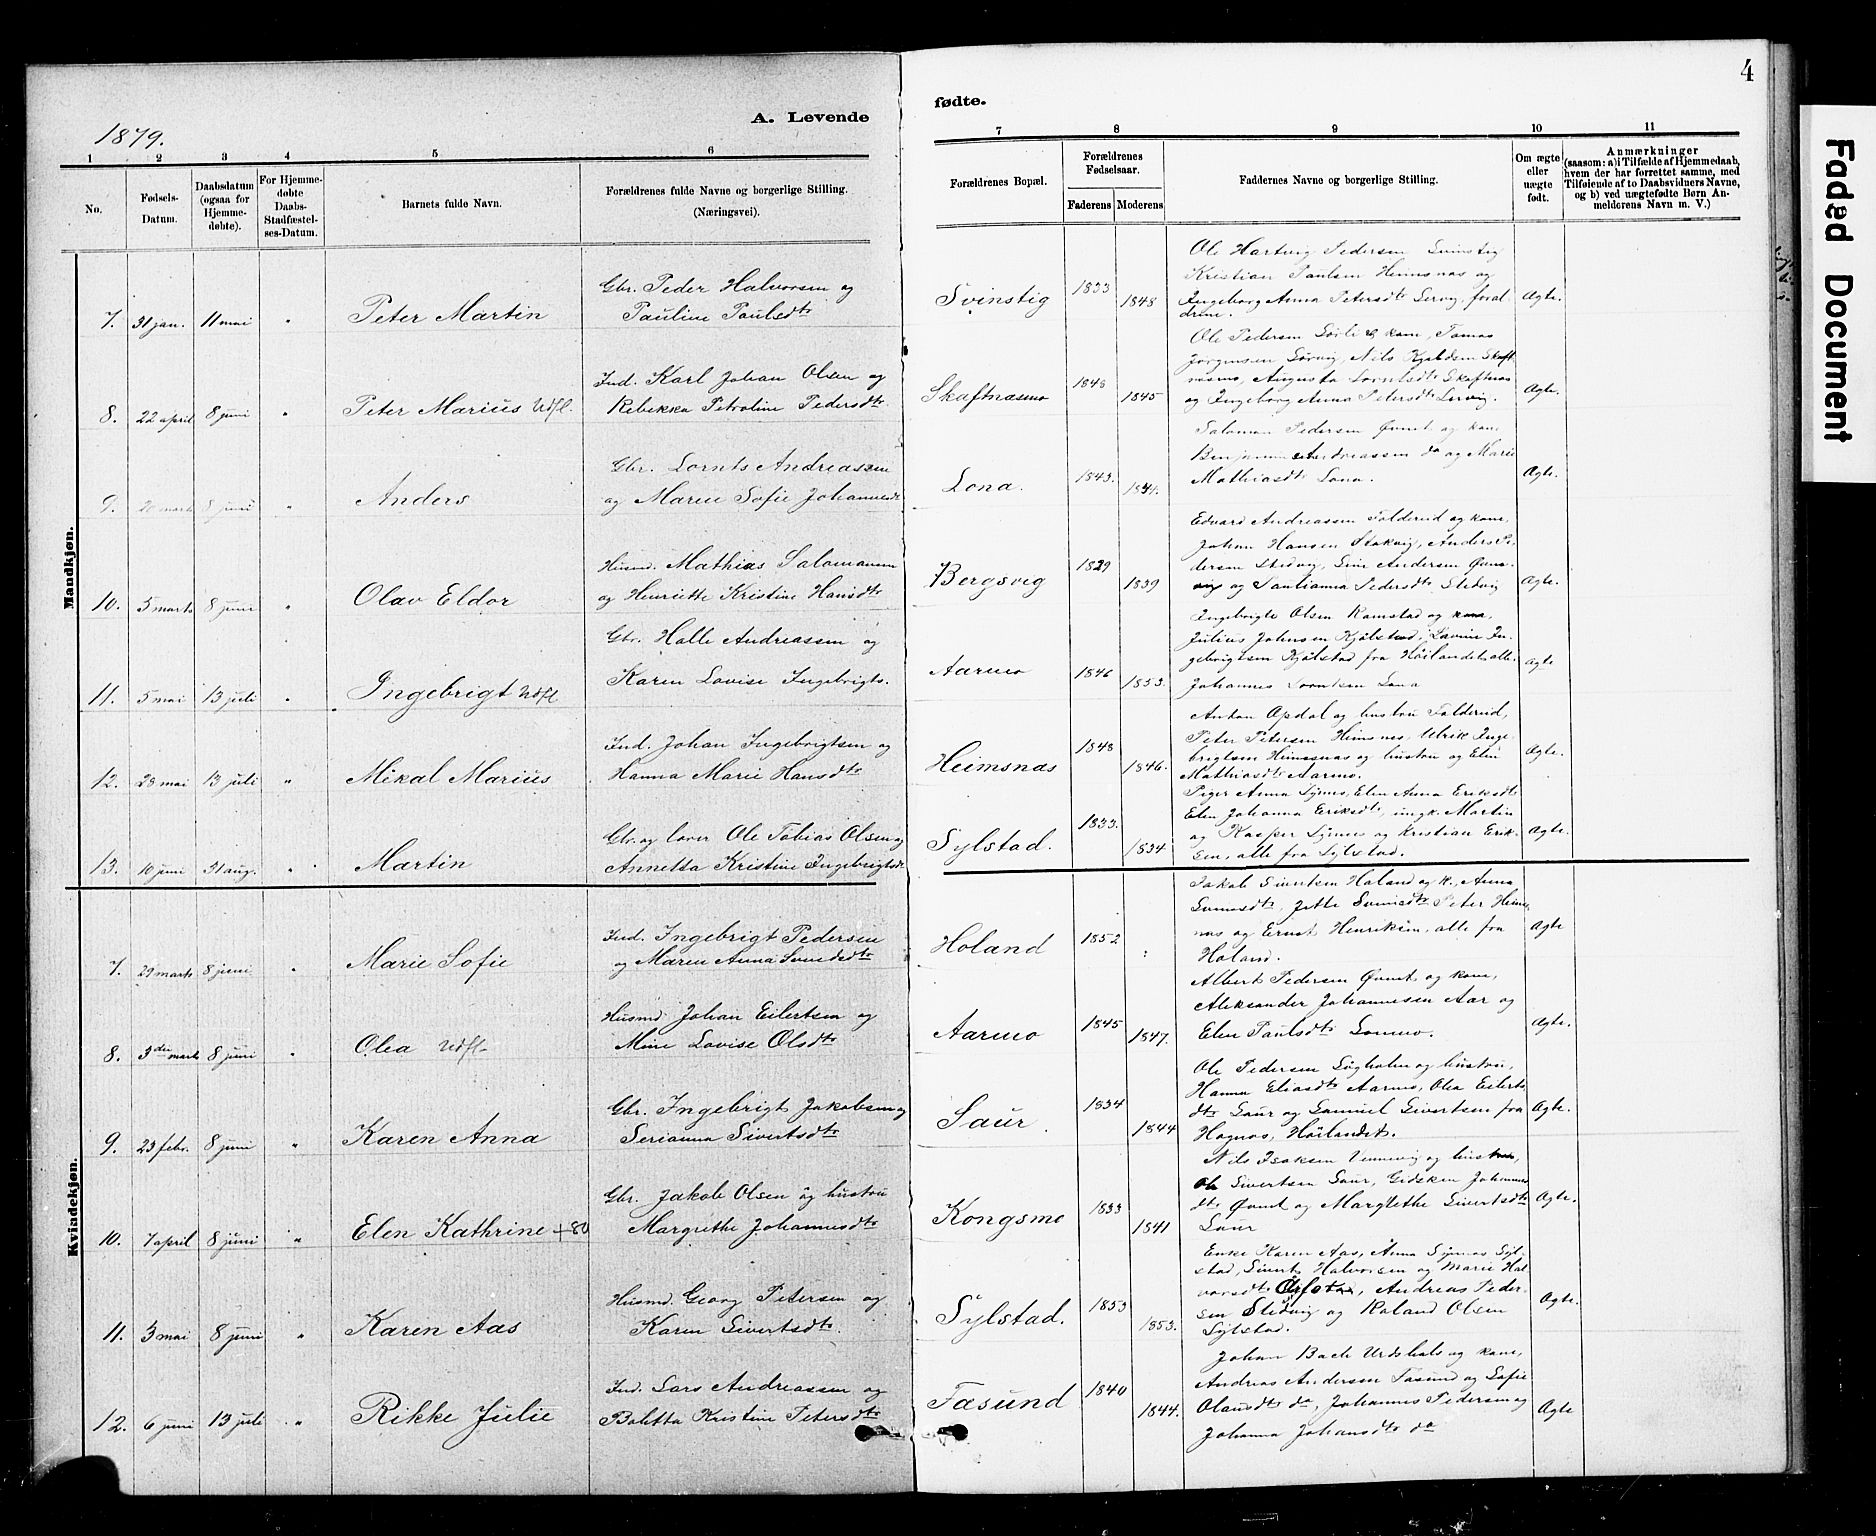 4
A. Levende
fødte.
1879.
1 2 3 4 5 6 7 8 9 10 11
No.
Fødsels-Datum.
Daabsdatum (ogsaa for Hjemme-døbte).
For Hjemme-døbte Daabs-Stadfæstel-ses-Datum.
Barnets fulde Navn.
Forældrenes fulde Navne og borgerlige Stilling. (Næringsvei).
Forældrenes Bopæl.
Forældrenes Fødselsaar.
Faderens Moderens
Faddernes Navne og borgerlige Stilling.
Om ægte eller uægte født.
Anmærkninger
(saasom: a) i Tilfælde af Hjemmedaab, hvem der har forrettet samme, med Tilføiende af to Daabsvidners Navne, og b) ved uægtefødte Børn Anmelderens Navn m. V.)
Mandkjøn.
7. 31 jan. 11 mai " Peter Martin
Gbr. Peder Halvorsen og
Pauline Paulsdtr
Svinstig 1833 1848
Ole Hartvig Pedersen Svinstig
Kristian Paulsen Heimsnæs og
Ingeborg Anna Petersdtr Lervig, foræl-
drene.
Ægte.
8. 22 april 8 juni " Peter Marius Udfl.
Ind. Karl Johan Olsen og
Rebekka Petroline Pedersdtr
Skaftnæsmo 1848 1845
Ole Pedersen Sørli og kone, Tomas
Jørgensen Lørvig, Nils
næsmo, Augusta Skaftnæs
og Ingeborg Anna Petersdtr Lervig.
Ægte.
9. 20 marts 8 juni " Anders
Gbr. Lornts Andreassen
og Maren Sofie Johannesdtr
Lona. 1843. 1841.
Salomon Pedersen Øvnt og kone
Benjamin Andreassen do og Marie
Mathiasdtr Lona.
Ægte.
10. 5 marts 8 juni " Olav Eldor
Husmd. Mathias Salomonsen
og Henriette Kristine Hansdtr
Bergsvig 1829 1839
Edvard Andreassen Foldereid og kone,
Johan Hansen Stokvig, Anders Pe-
dersen Stedvig, Andersen
og Santianna Pedersdtr Stedvig
Ægte.
11. 5 mai 13 juli " Ingebrigt Udfl
Gbr. Halle Andreassen og
Karen Lovise Ingebrigts.
Aarmo 1846 1853.
Ingebrigt Olsen Ramstad og kone,
Julius Johnsen Kjølstad, Lavine In-
gebrigtsen Kjølstad fra Höilandet alle.
Johannes Lorntsen Lona
Ægte
12. 28 mai 13 juli " Mikal Marius
Ind. Johan Ingebrigtsen og
Hanna Marie Hansdtr
Heimsnæs 1848 1846.
Anton Opdal og hustru Foldereid,
Peter Petersen Heimsnes, Ulrik Inge-
brigtsen Heimsnæs og hustru og Elen
Mathiasdtr Aarmo.
Ægte.
13. 10 juni 31 aug. " Martin
Gbr. og lærer Ole Tobias Olsen og
Annetta Kristine Ingebrigtsdtr
Sylstad. 1833. 1834.
Piger Anna Synnes, Elen Anna Eriksdtr
Elen Johanna Eriksdtr, ungk. Martin
og Kasper Synnes og Kristian Erik-
sen, alle fra Sylstad.
Ægte.
Kvindekjøn.
7. 29 marts 8 juni " Marie Sofie
Ind. Ingebrigt Pedersen
og Maren Anna
Höland 1852 :
Jakob Sivertsen Höland og k., Anna
Jette Peter Heims-
næs og Ernst Henriksen, alle fra
Höland.
Ægte
8. 3die marts 8 juni " Olea Udfl.
Husmd Johan Eilertsen og
Mine Lovise Olsdtr
Aarmo 1845 1847.
Albert Pedersen Øvnt og kone,
Aleksander Johannesen Aar og
Elen Paulsdtr
Ægte.
9. 23 febr. 8 juni " Karen Anna
Gbr. Ingebrigt Jakobsen og
Serianna Sivertsdtr
Saur. 1834 1844
Ole Pedersen og hustru,
Hanna Eliasdtr Aarmo, Olea Eilerts
dtr Saur og Samuel Sivertsen fra
Hognæs, Höilandet.
Ægte.
10. 7 april 8 juni " Elen Kathrine +80
Gbr. Jakob Olsen og hustru
Margrethe Johannesdtr
Kongsmo 1833 1841
Nils Isaksen Vennevig og hustru,
Ole Sivertsen Saur, Gidsken Johannes
dtr Øvnt og Margrethe Sivertsdtr
Saur
Ægte.
11. 3 mai 8 juni " Karen Aas
Husmd Georg Petersen og
Karen Sivertsdtr
Sylstad. 1853 1853.
Enke Karen Aas, Anna Synnes Syl-
stad, Sivert Halvorsen og Marie Hal-
vorsdtr Andreas Peder-
sen Stedvig og Roland Olsen
Sylstad.
Ægte.
12. 6 juni 13 juli " Rikke Julie
Ind. Lars Andreassen og
Boletta Kristine Petersdtr
Fasund 1840 1844.
Johan Bach Urdshals og kone,
Andreas Andersen Fasund og Sofie
Olausdtr do, Johannes Pedersen og
Johanna Johansdtr do
Ægte
Faded Document